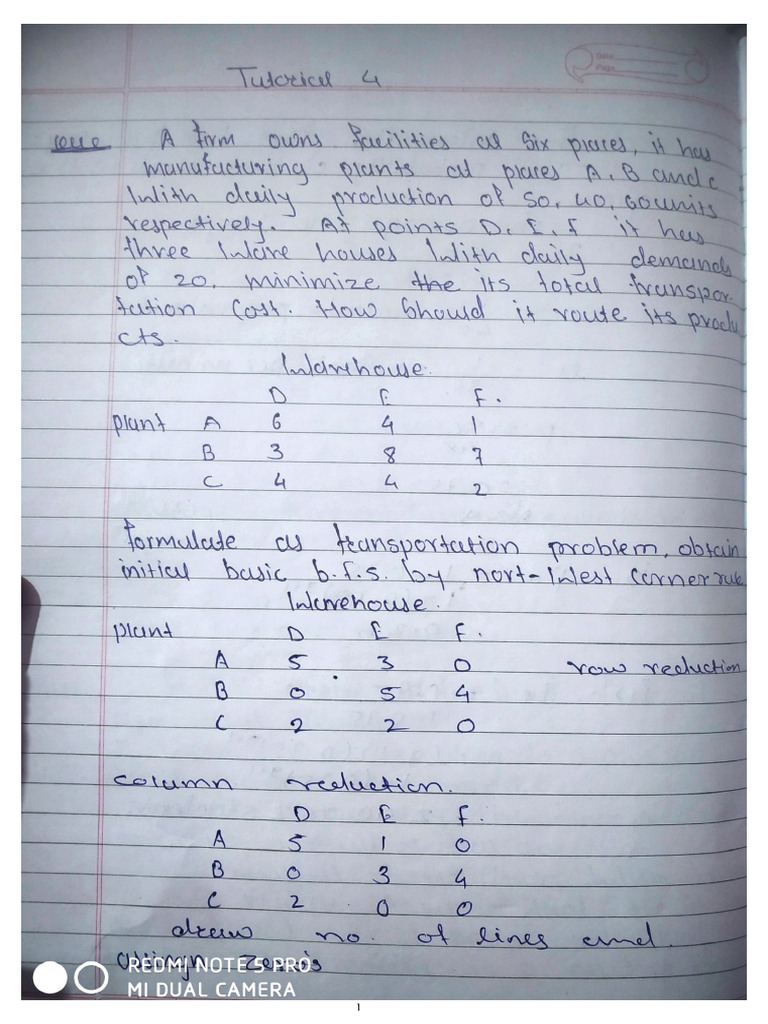 Tutorial 4
Date
Page
Que A firm owns facilities at Six places, it has
manufacturing plants at places A, B and C
With daily production of 50, 40, 60 units
respectively. At points D, E, F it has
three Ware houses With daily demands
of 20, minimize the its total transpor-
tation Cost. How Should it route its produ
cts.
Warehouse.
D E F.
plant A 6 4 1
B 3 8 7
C 4 4 2
formulate as transportation problem, obtain
initial basic b.f.s. by nort-West corner rule
Warehouse.
plant D E F.
A 5 3 0 row reduction
B 0 5 4
C 2 2 0
column reduction.
D E F.
A 5 1 0
B 0 3 4
C 2 0 0
draw no. of lines and
zeros
REDMI NOTE 5 PRO
MI DUAL CAMERA
1